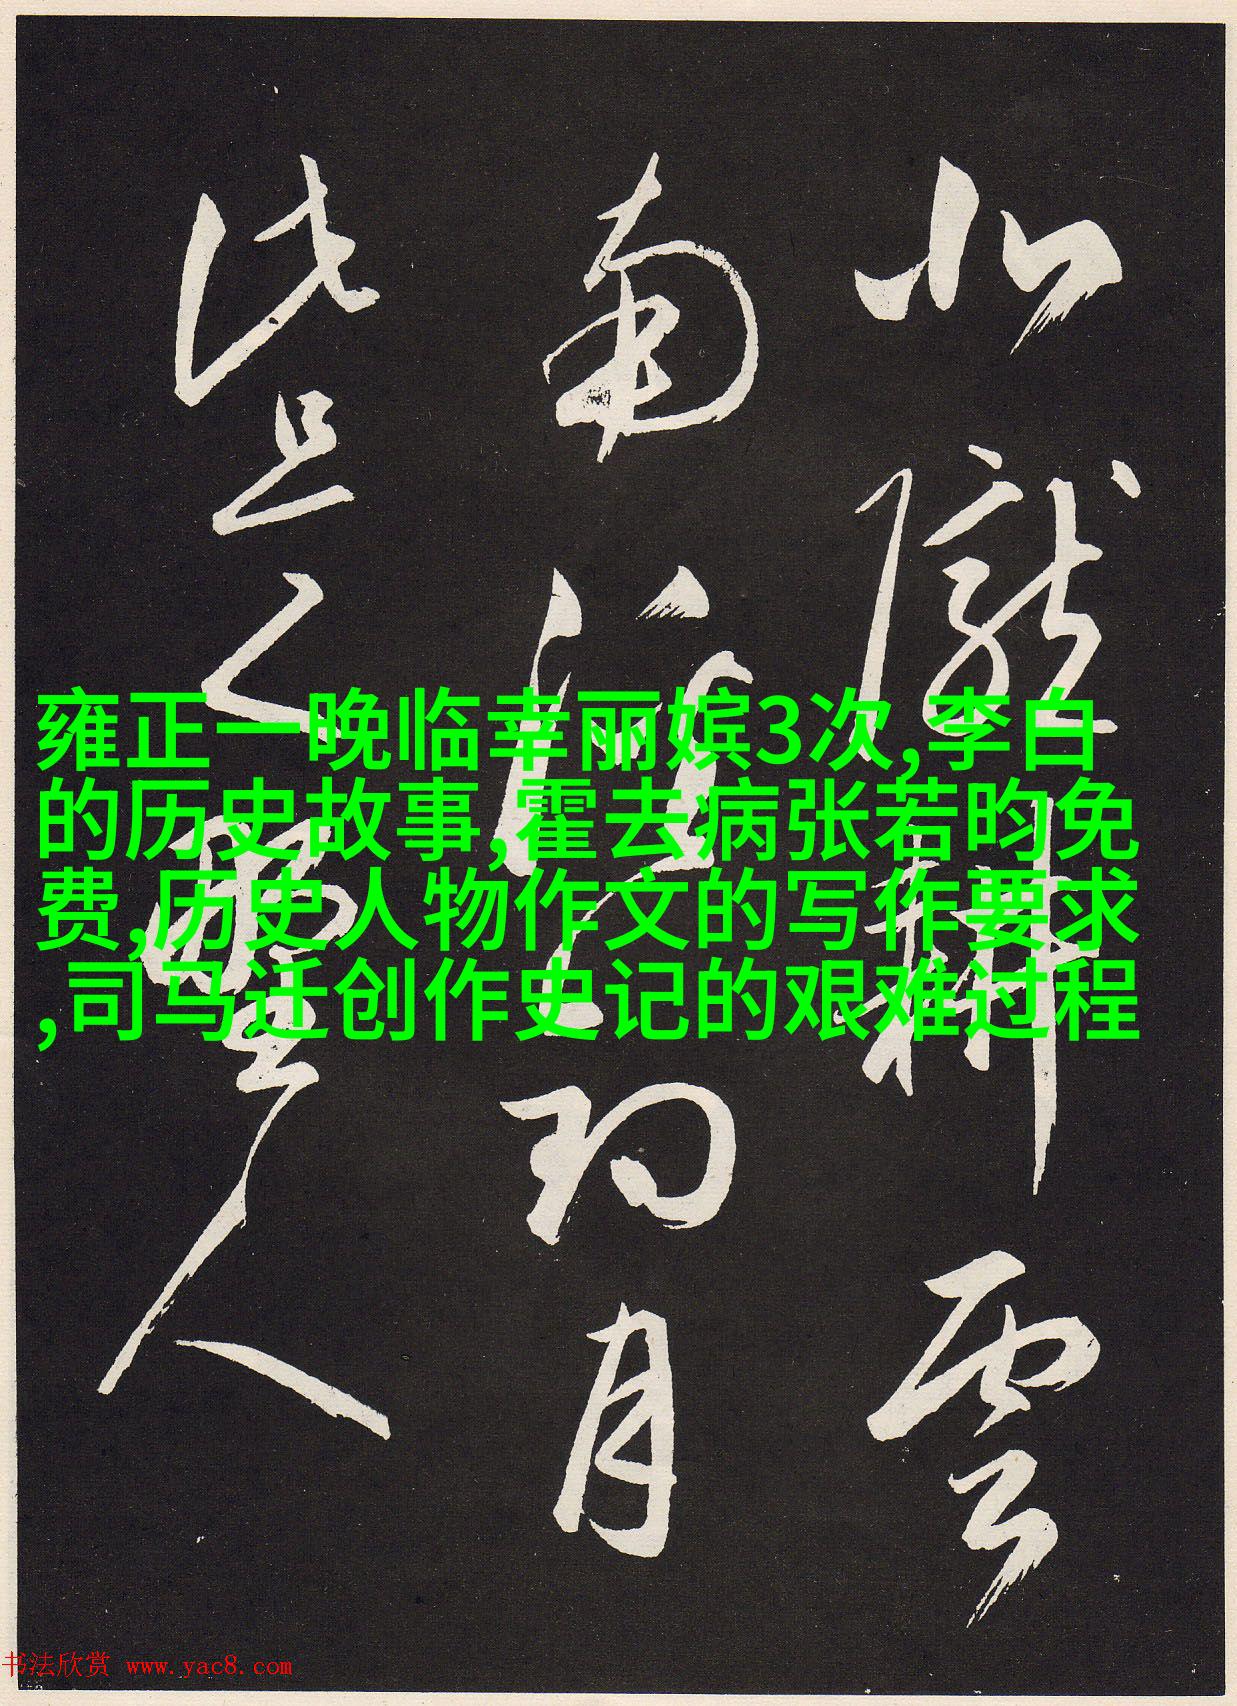 北隴耕雲
南溪釣月
此是野人
雍正一晚临幸丽嫔3次,李白
的历史故事,霍去病张若昀免
费,历史人物作文的写作要求
,司马迁创作史记的艰难过程
书法欣赏 www.yac8.com